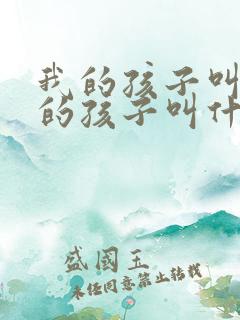 我的孩子叫
的孩子叫什
盛國玉
未经同意禁止转载